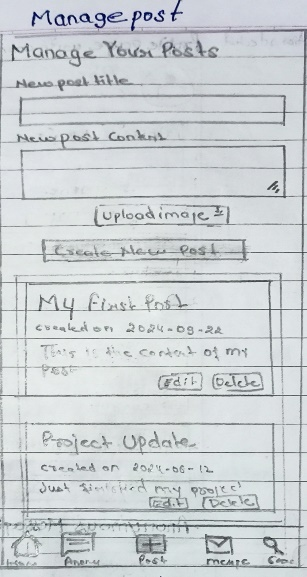 Manage post
Manage Your Posts
New post title
New post Content
Upload image
Create New Post
My First Post
created on 2024-09-22
This is the content of my
Post
Edit Delete
Project Update
created on 2024-06-12
Just finished my project
Edit Delete
Home Post